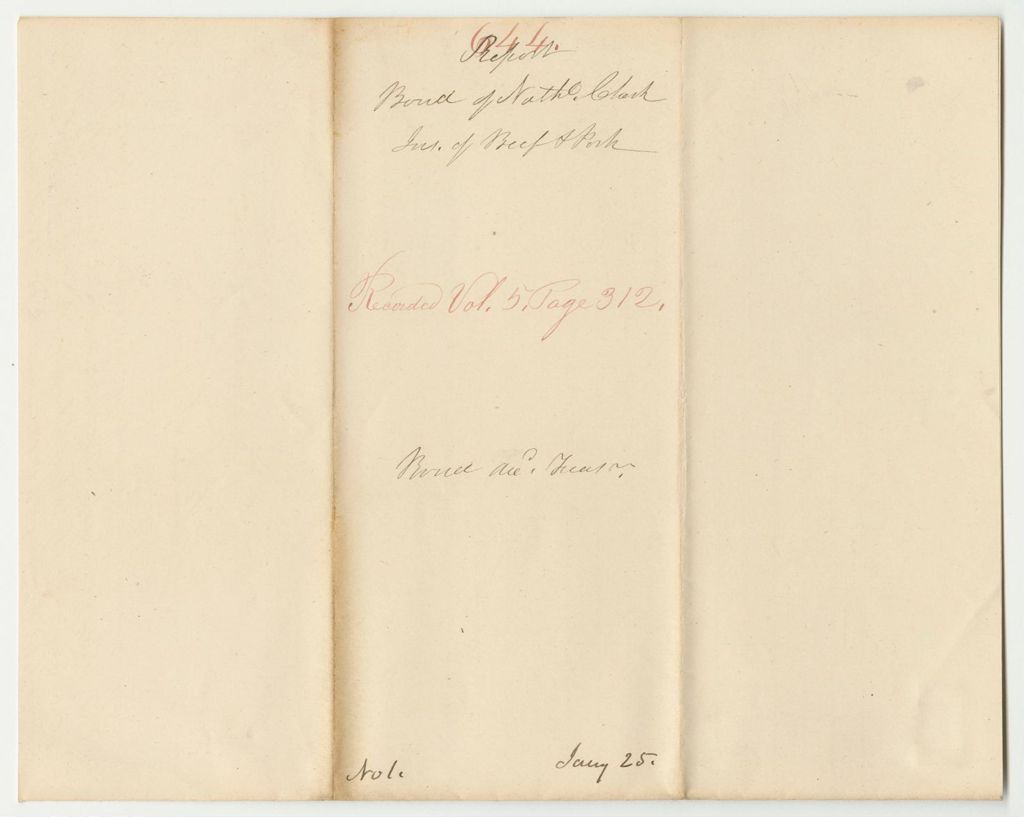 644.
Report
Bond of Nathl. Clark
Ins. of Beef & Pork
Recorded Vol. 5. Page 312.
Bond del. Treasr.
No 1.
Jany 25.